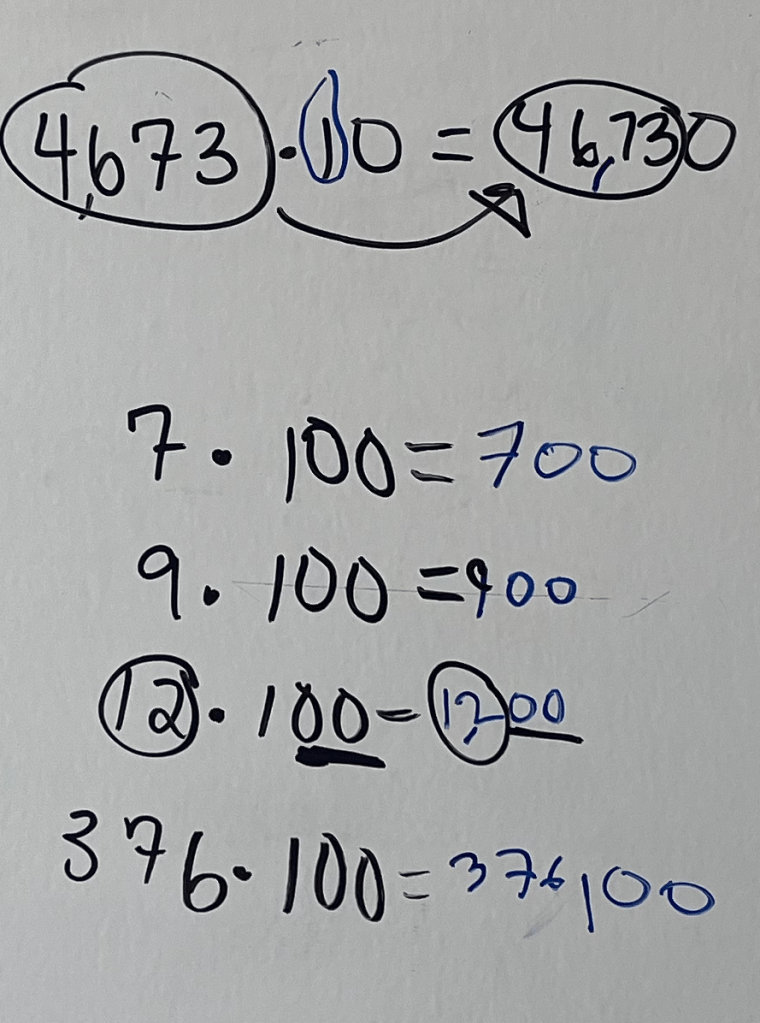 4,673 · 10 = 46,730
7 · 100 = 700
9 · 100 = 900
12 · 100 = 1,200
376 · 100 = 376,00